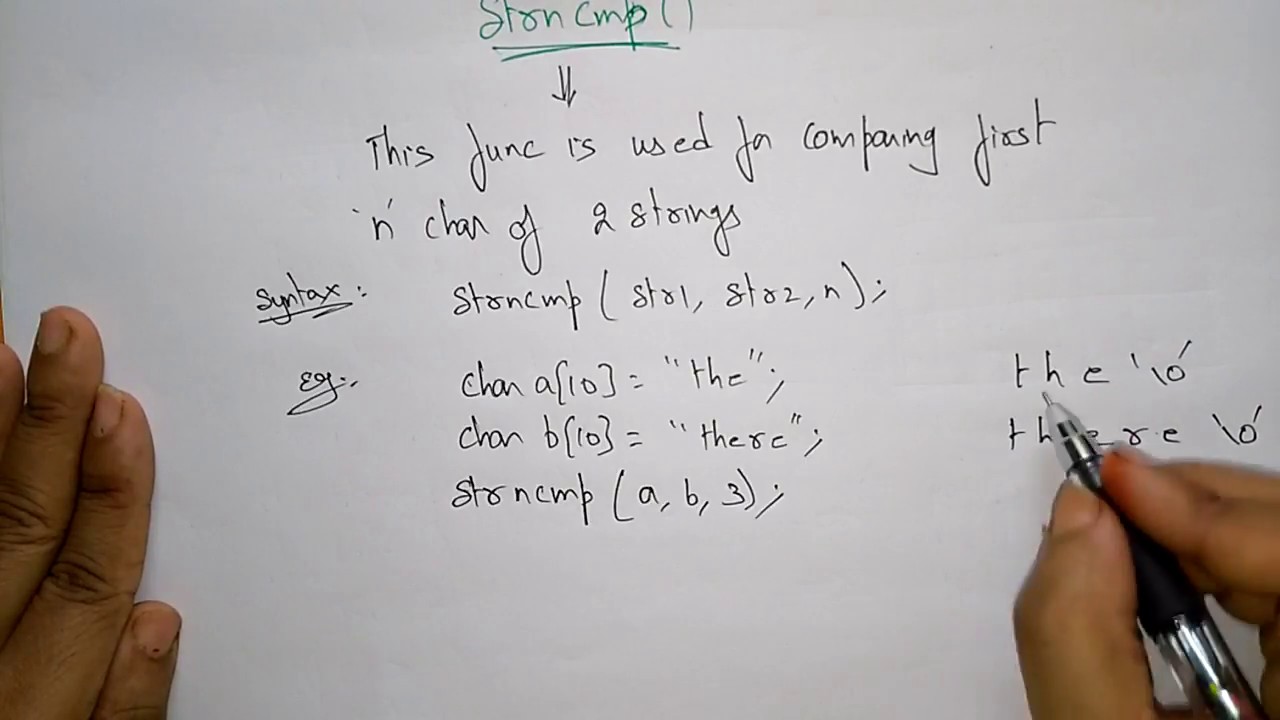 strncmp()
⇓
This func is used for comparing first
'n' char of 2 strings
Syntax: strncmp ( str1, str2, n );
eg:. char a[10] = "the"; the '\0'
char b[10] = "there"; there '\0'
strncmp (a, b, 3);